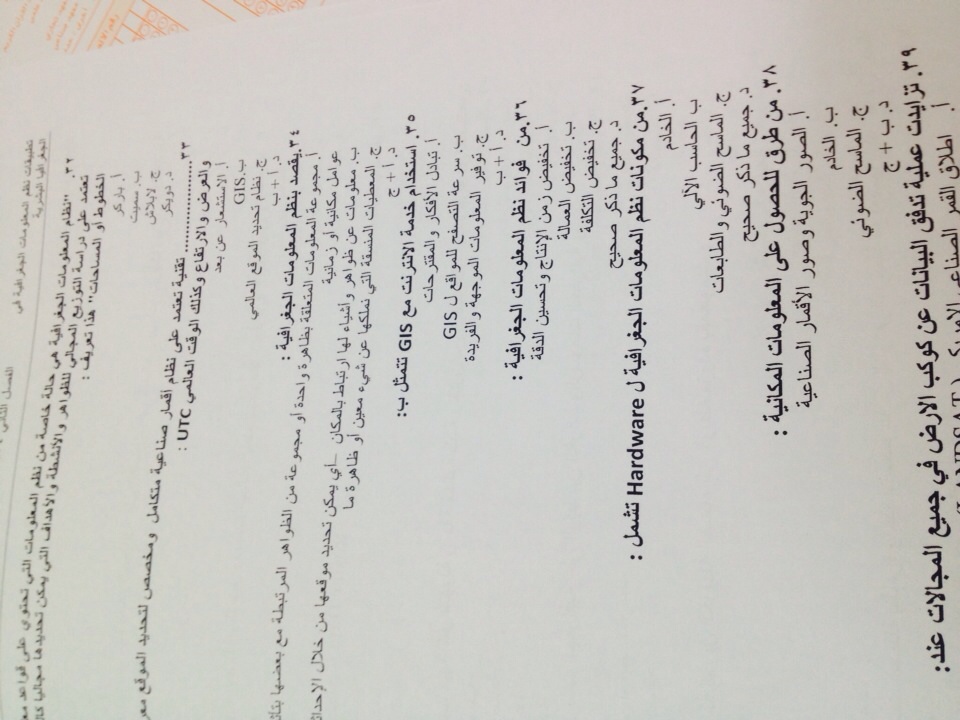 تطبيقات نظم المعلومات الجغرافية في
الجغرافيا البشرية
الفصل الثاني
٣٢. "نظام المعلومات الجغرافية هي حالة خاصة من نظم المعلومات التي تحتوي على قواعد
تعتمد على دراسة التوزيع المجالي للظواهر والأنشطة والأهداف التي يمكن تحديدها مجاليا
الخطوط أو المساحات" هذا تعريف :
أ. باركر
ب. سميث
ج. لابلاش
د. دويكر
٣٣. .................. تقنية تعتمد على نظام أقمار صناعية متكامل ومخصص لتحديد الموقع
والعرض والارتفاع وكذلك الوقت العالمي UTC :
أ. الاستشعار عن بعد
ب. GIS
ج. نظام تحديد الموقع العالمي
د. أ + ب
٣٤. يقصد بنظم المعلومات الجغرافية :
أ. مجموعة المعلومات المتعلقة بظاهرة واحدة أو مجموعة من الظواهر المرتبطة مع بعضها
عوامل مكانية أو زمانية
ب. معلومات عن ظواهر وأشياء لها ارتباط بالمكان –أي يمكن تحديد موقعها من خلال
ج. المعطيات المنسقة التي نملكها عن شيء معين أو ظاهرة ما
د. أ + ج
٣٥. استخدام خدمة الانترنت مع GIS تتمثل ب:
أ. تبادل الأفكار والمقترحات
ب. سرعة التصفح للمواقع ل GIS
ج. توفير المعلومات الموجهة والفريدة
د. أ + ب
٣٦. من فوائد نظم المعلومات الجغرافية :
أ. تخفيض زمن الإنتاج وتحسين الدقة
ب. تخفيض العمالة
ج. تخفيض التكلفة
د. جميع ما ذكر صحيح
٣٧. من مكونات نظم المعلومات الجغرافية ل Hardware تشمل :
أ. الخادم
ب. الحاسب الآلي
ج. الماسح الضوئي والطابعات
د. جميع ما ذكر صحيح
٣٨. من طرق للحصول على المعلومات المكانية :
أ. الصور الجوية وصور الأقمار الصناعية
ب. الخادم
ج. الماسح الضوئي
د. ب + ج
٣٩. تزايدت عملية تدفق البيانات عن كوكب الارض في جميع المجالات عند:
أ. اطلاق القمر الصناعي الامريكي (LANDSAT)